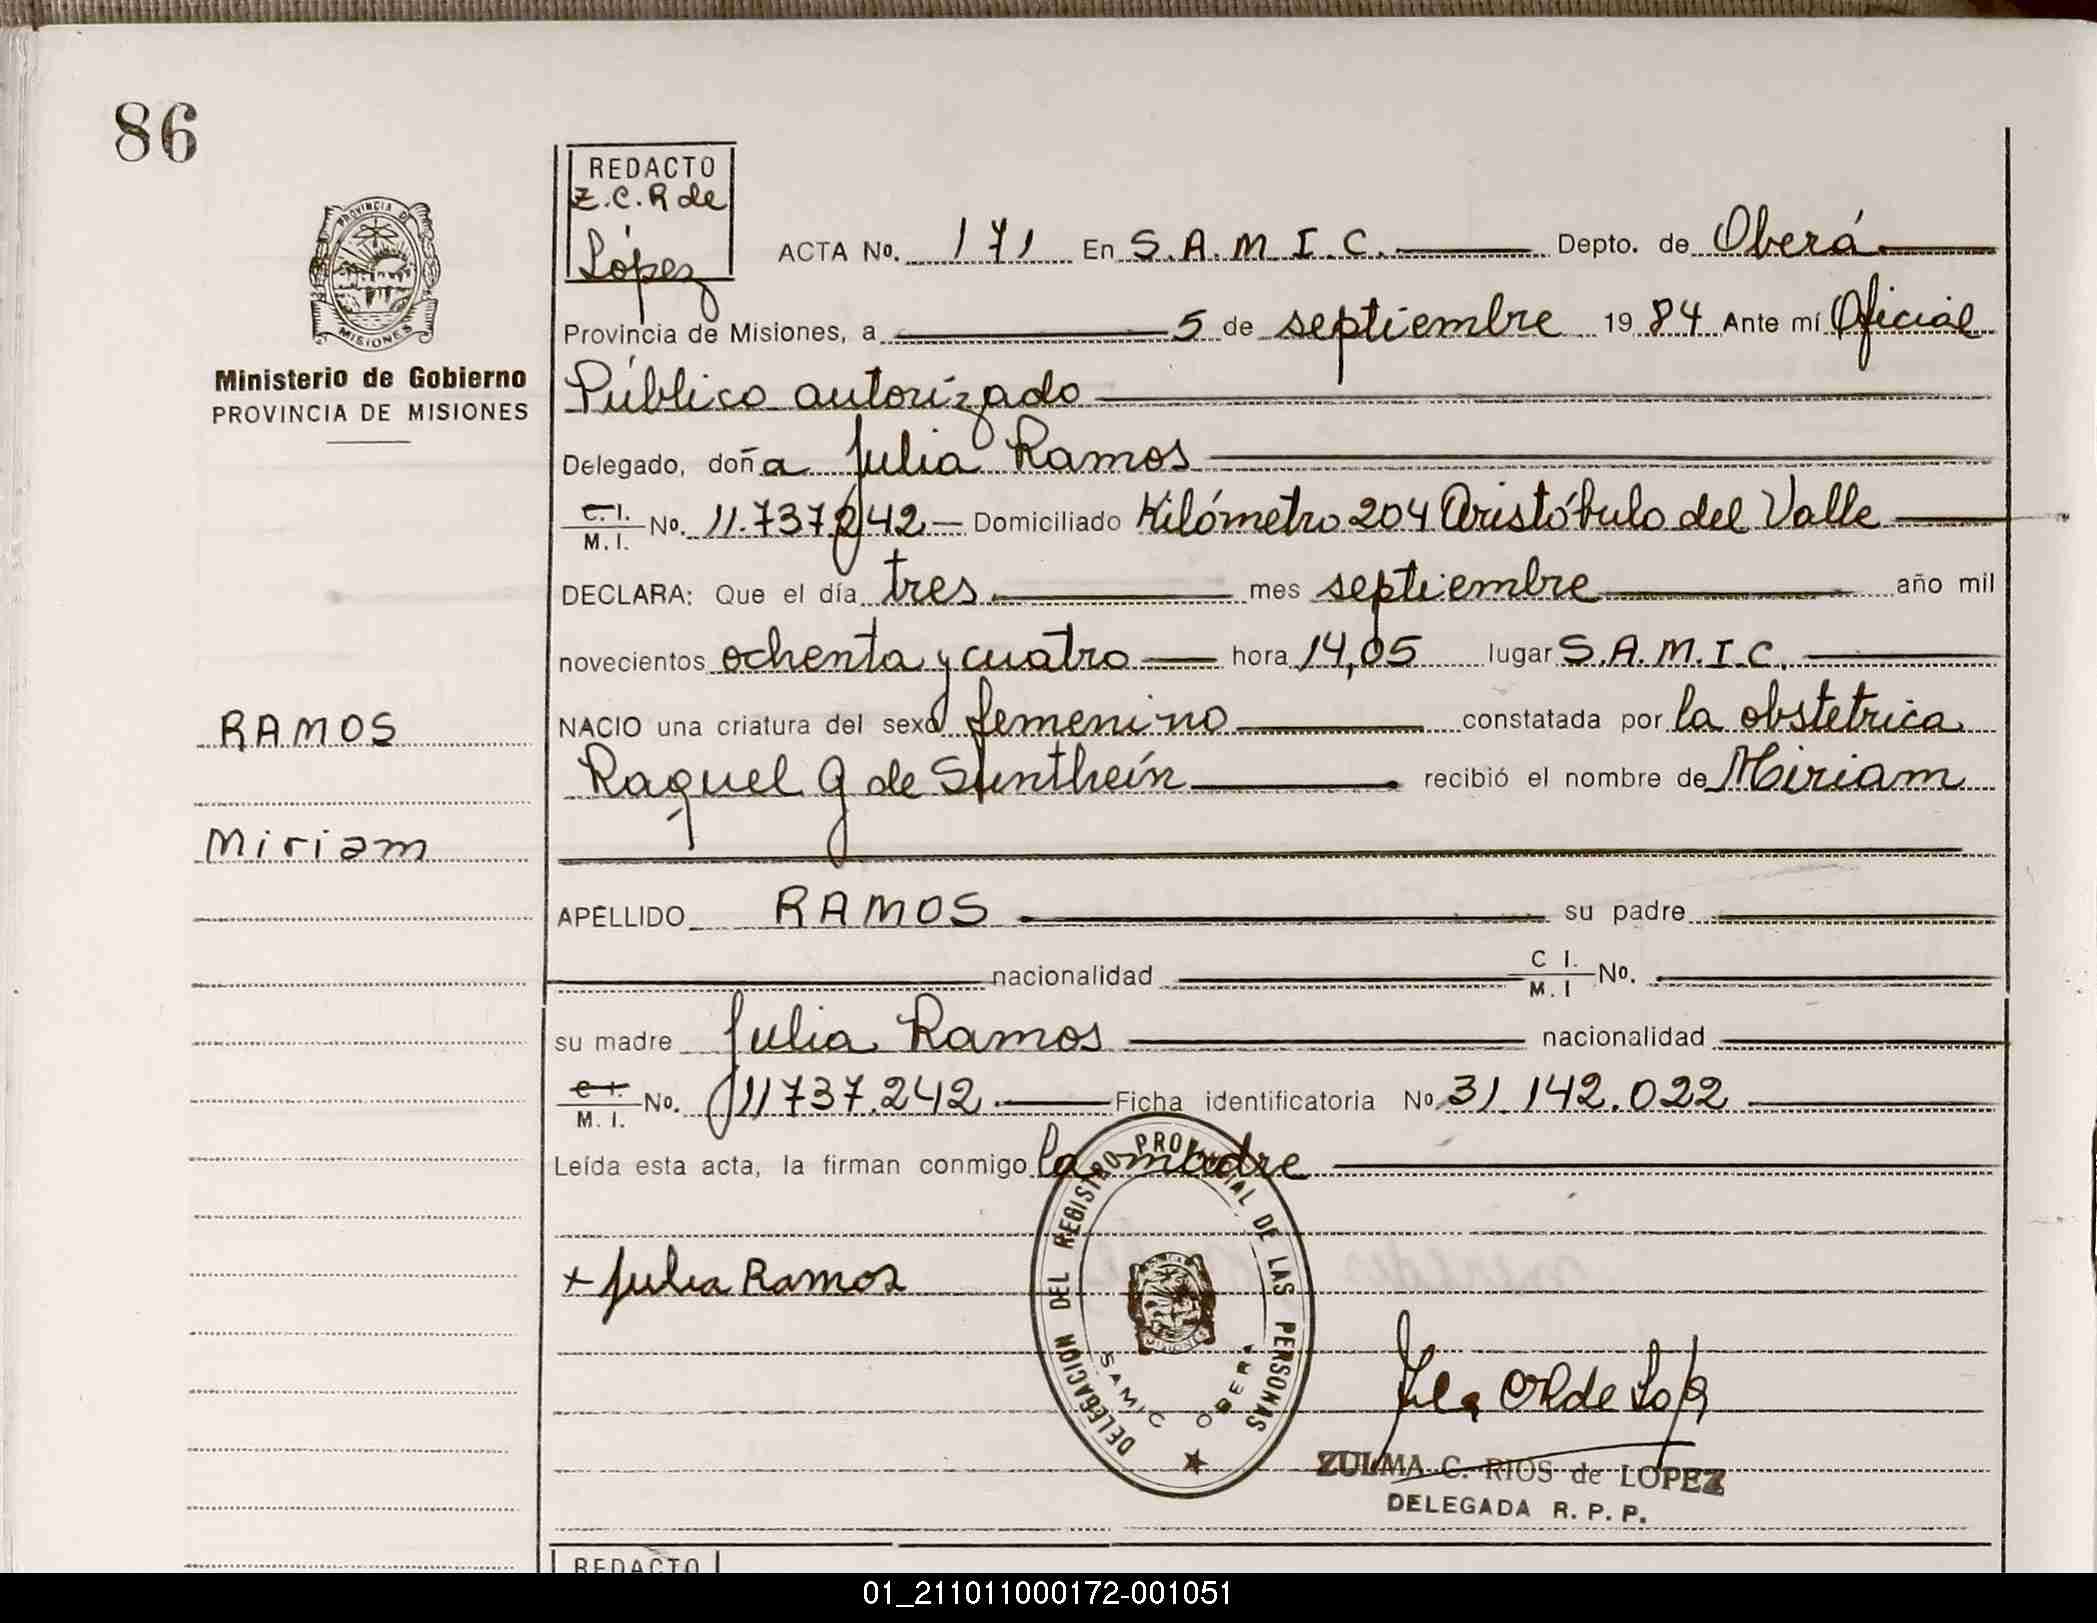 86
REDACTO
Z.C.R de
López
PROVINCIA DE
MISIONES
Ministerio de Gobierno
PROVINCIA DE MISIONES
ACTA No. 171 En S.A.M.I.C. Depto. de Oberá
Provincia de Misiones, a 5 de septiembre 1984 Ante mí Oficial
Público autorizado
Delegado, doña Julia Ramos
C.I. M.I. No. 11.737.242 Domiciliado Kilómetro 204 Aristóbulo del Valle
DECLARA: Que el día tres mes septiembre año mil
novecientos ochenta y cuatro hora 14,05 lugar S.A.M.I.C.
RAMOS
NACIO una criatura del sexo femenino constatada por la obstetrica
Raquel G de Sunthein recibió el nombre de Miriam
Miriam
APELLIDO RAMOS su padre
nacionalidad C I. M.I No.
su madre Julia Ramos nacionalidad
C.I. M.I. No. 11737.242 Ficha identificatoria No 31.142.022
Leída esta acta, la firman conmigo la madre
+ Julia Ramos
DELEGACION DEL REGISTRO PROVINCIAL DE LAS PERSONAS
SAMIC OBERA
ZULMA C. RIOS de LOPEZ
DELEGADA R. P. P.
REDACTO
01_211011000172-001051